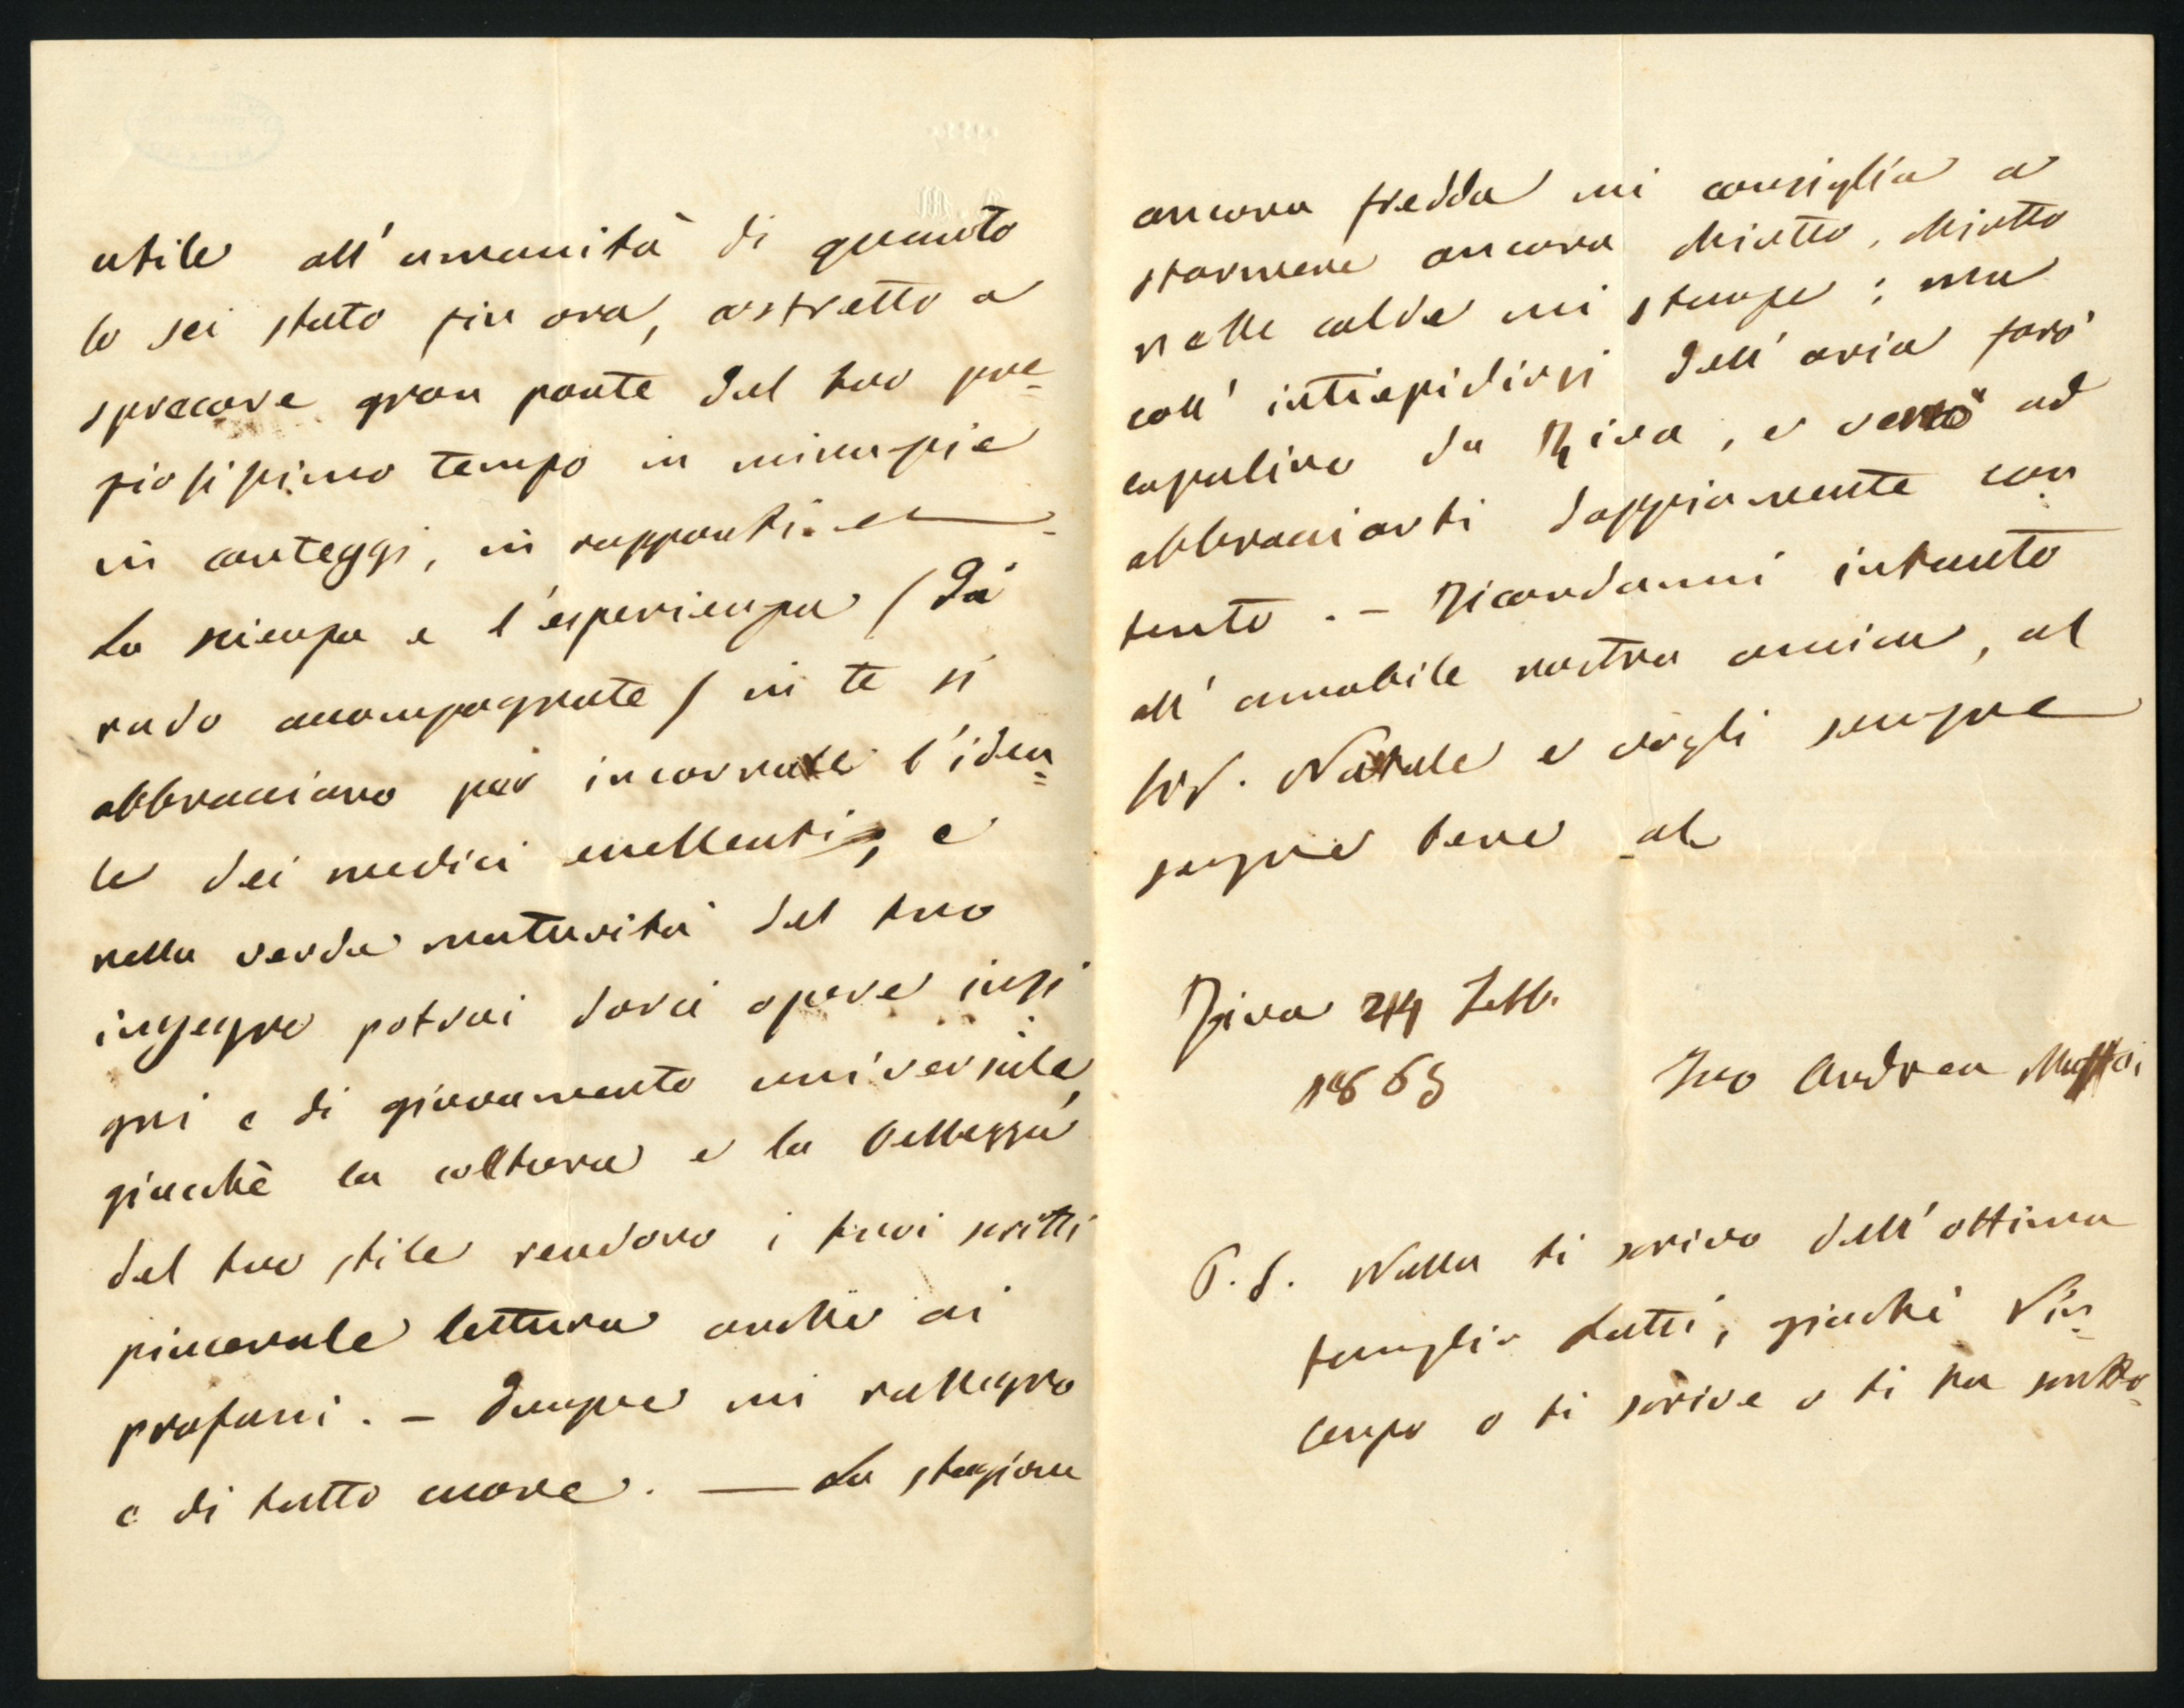 utile all'umanità di quanto
lo sei stato fin ora, astretto a
sprecare gran parte del tuo pre=
ziosissimo tempo in minuzie
in conteggi, in rapporti. e
La scienza e l'esperienza (di
rado accompagnate) in te si
abbracciano per incarnare l'idea=
le dei medici eccellenti, e
nella verde maturità del tuo
ingegno potrai darci opere insi
gni e di giovamento universale,
giacchè la coltura e la bellezza
del tuo stile rendono i tuoi scritti
piacevole lettura anche ai
profani. – Dunque mi rallegro
e di tutto cuore. — La stagione
ancora fredda mi consiglia a
starmene ancora chiotto, chiotto
nelle calde mi stanze; ma
coll' intiepidirsi dell'aria farò
capolino da Riva, e verrò ad
abbracciarti doppiamente con
tento. – Ricordami intanto
all'amabile nostra amica, al
Natale e vogli sempre
bene al
Riva 24 Febb.
1865
Tuo Andrea Maffei
P.S. Nulla ti scrivo dell'ottima
famiglia Lutti, giachè Vin=
cenzo o ti scrive o ti ha scritto